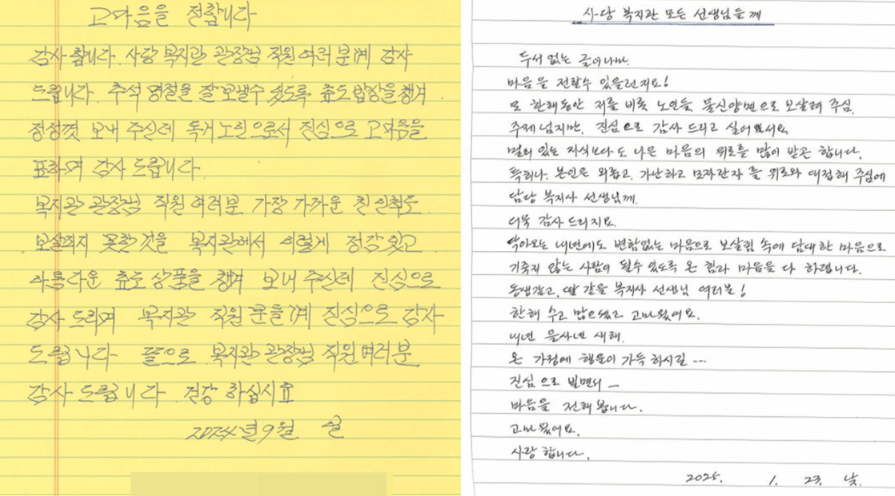 고마음을 전합니다
감사합니다. 사당 복지관 관장님 직원 여러분께 감사
드립니다. 추석 명절을 잘 보낼수 있도록 효도밥상을 챙겨
정성껏 보내 주신데 독거노인으로서 진심으로 고마음을
표하며 감사 드립니다.
복지관 관장님 직원 여러분 가장 가까운 친인척도
보살피지 못한것을 복지관에서 이렇게 정감있고
아름다운 효도 상품을 챙겨 보내 주신데 진심으로
감사 드리며 복지관 직원 분들께 진심으로 감사
드립니다 끝으로 복지관 관장님 직원여러분
감사 드립니다 건강 하십시요
2024년 9월
사당 복지관 모든 선생님들께
두서 없는 글이나마.
마음을 전할수 있을런지요!
또 한해동안 저를 비롯 노인들 물신양면으로 보살펴 주심.
주제 넘지만. 진심으로 감사 드리고 싶어요.
멀리 있는 자식보다도 나은 마음의 위로를 많이 받곤 합니다.
특히나. 본인은 외롭고, 가난하고 모자란자 를 위로와 대접해 주심에
담당 복지사 선생님께.
더욱 감사 드리지요.
돌아오는 내년에도 변함없는 마음으로 보살핌 속에 담대한 마음으로
기죽지 않는 사람이 될수 있도록 온 힘과 마음을 다 하렵니다.
동생같고, 딸 같은 복지사 선생님 여러분!
한해 수고 많으셨고 고마웠어요.
내년 을사년 새해.
온 가정에 행운이 가득 하시길 ---
진심으로 빌면서 ㅡ
마음을 전해봅니다.
고마웠어요.
사랑합니다.
2025. 1. 23.